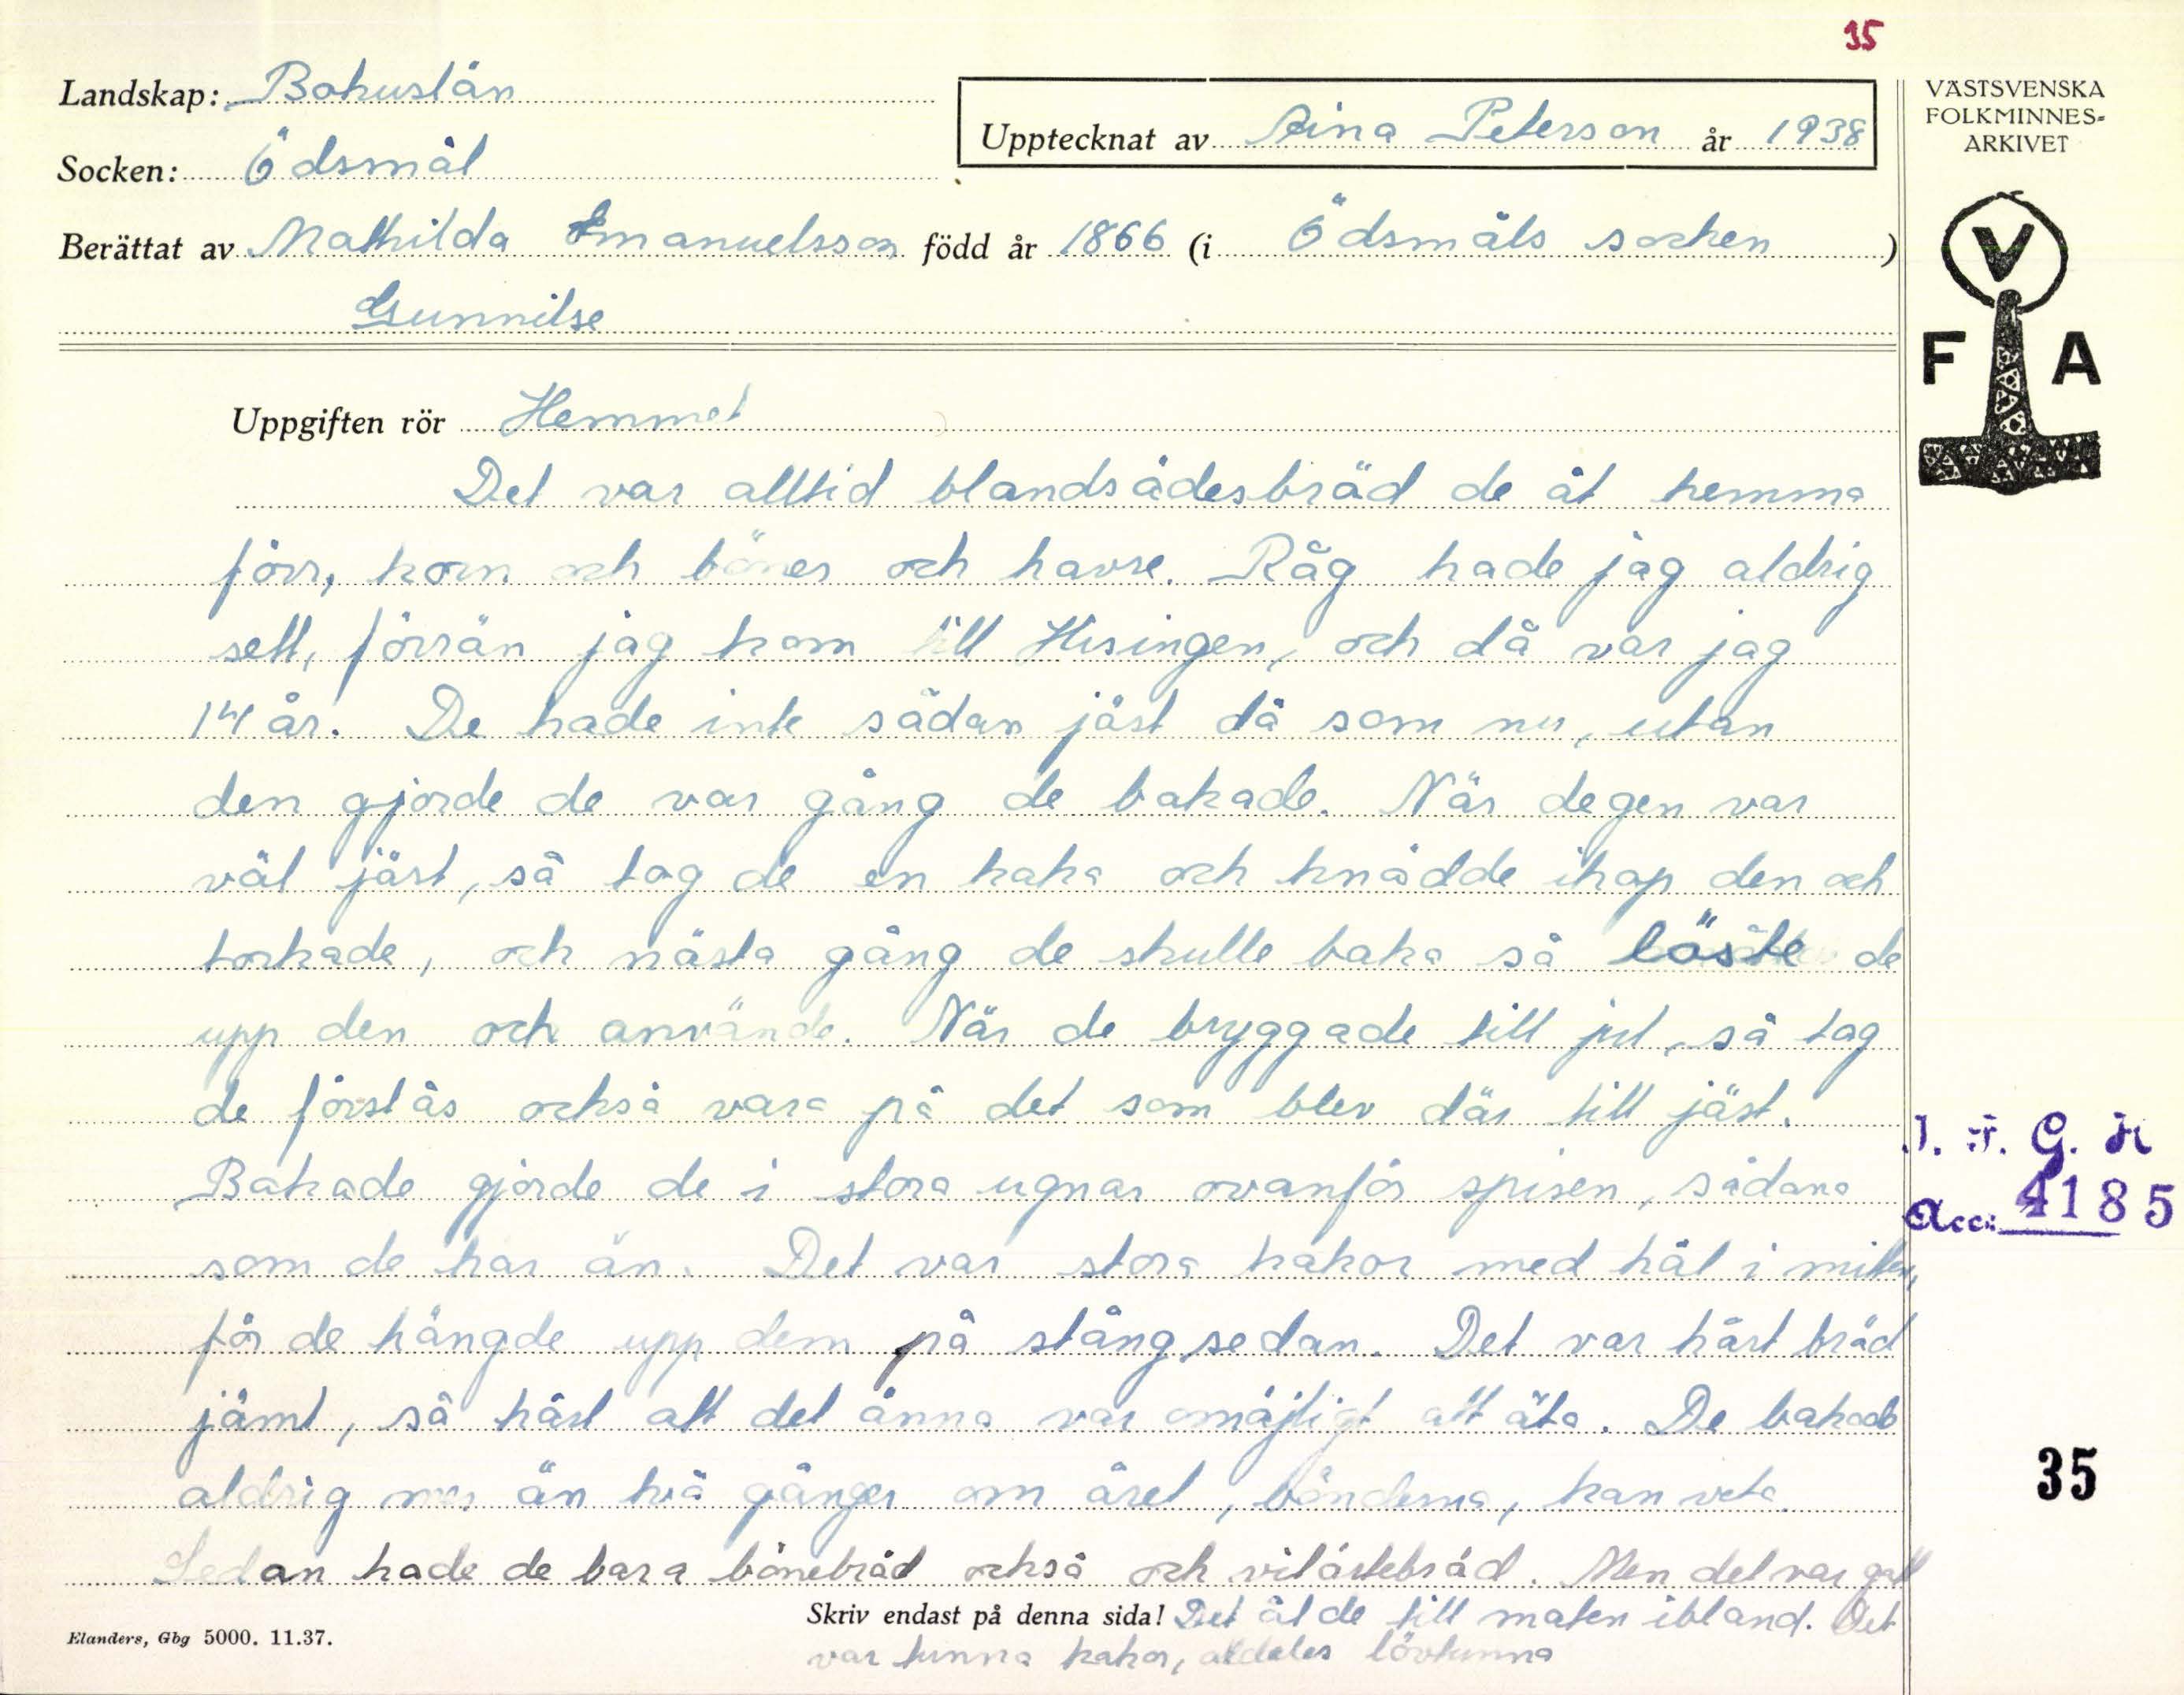 35
Landskap: Bohuslän
Upptecknat av Aina Peterson år 1938
Socken: Ödsmål
Berättat av Mathilda Emanuelsson född år 1866 (i Ödsmåls socken )
Gunnilse
VÄSTSVENSKA
FOLKMINNES-
ARKIVET
V
F A
Uppgiften rör Hemmet
Det var alltid blandsädesbröd de åt hemma
förr, korn och böner och havre. Råg hade jag aldrig
sett, förrän jag kom till Hisingen, och då var jag
14 år. De hade inte sådan jäst då som nu, utan
den gjorde de var gång de bakade. När degen var
väl jäst, så tog de en kaka och knådde ihop den och
torkade, och nästa gång de skulle baka så löste de
upp den och använde. När de bryggade till jul, så tog
de förstås också vara på det som blev där till jäst.
Bakade gjorde de i stora ugnar ovanför spisen, sådana
som de har än. Det var stora kakor med hål i mitten,
för de hängde upp dem på stång sedan. Det var hårt bröd
jämt, så hårt att det änna var omöjligt att äta. De bakade
aldrig mer än två gånger om året, bönderna, kan veta.
Sedan hade de bara bönebröd också och vitärtebröd. Men det var gott
Skriv endast på denna sida! Det åt de till maten ibland. Det
var tunna kakor, alldeles lövtunna
Elanders, Gbg 5000. 11.37.
I. F. G. H
Acc: 4185
35